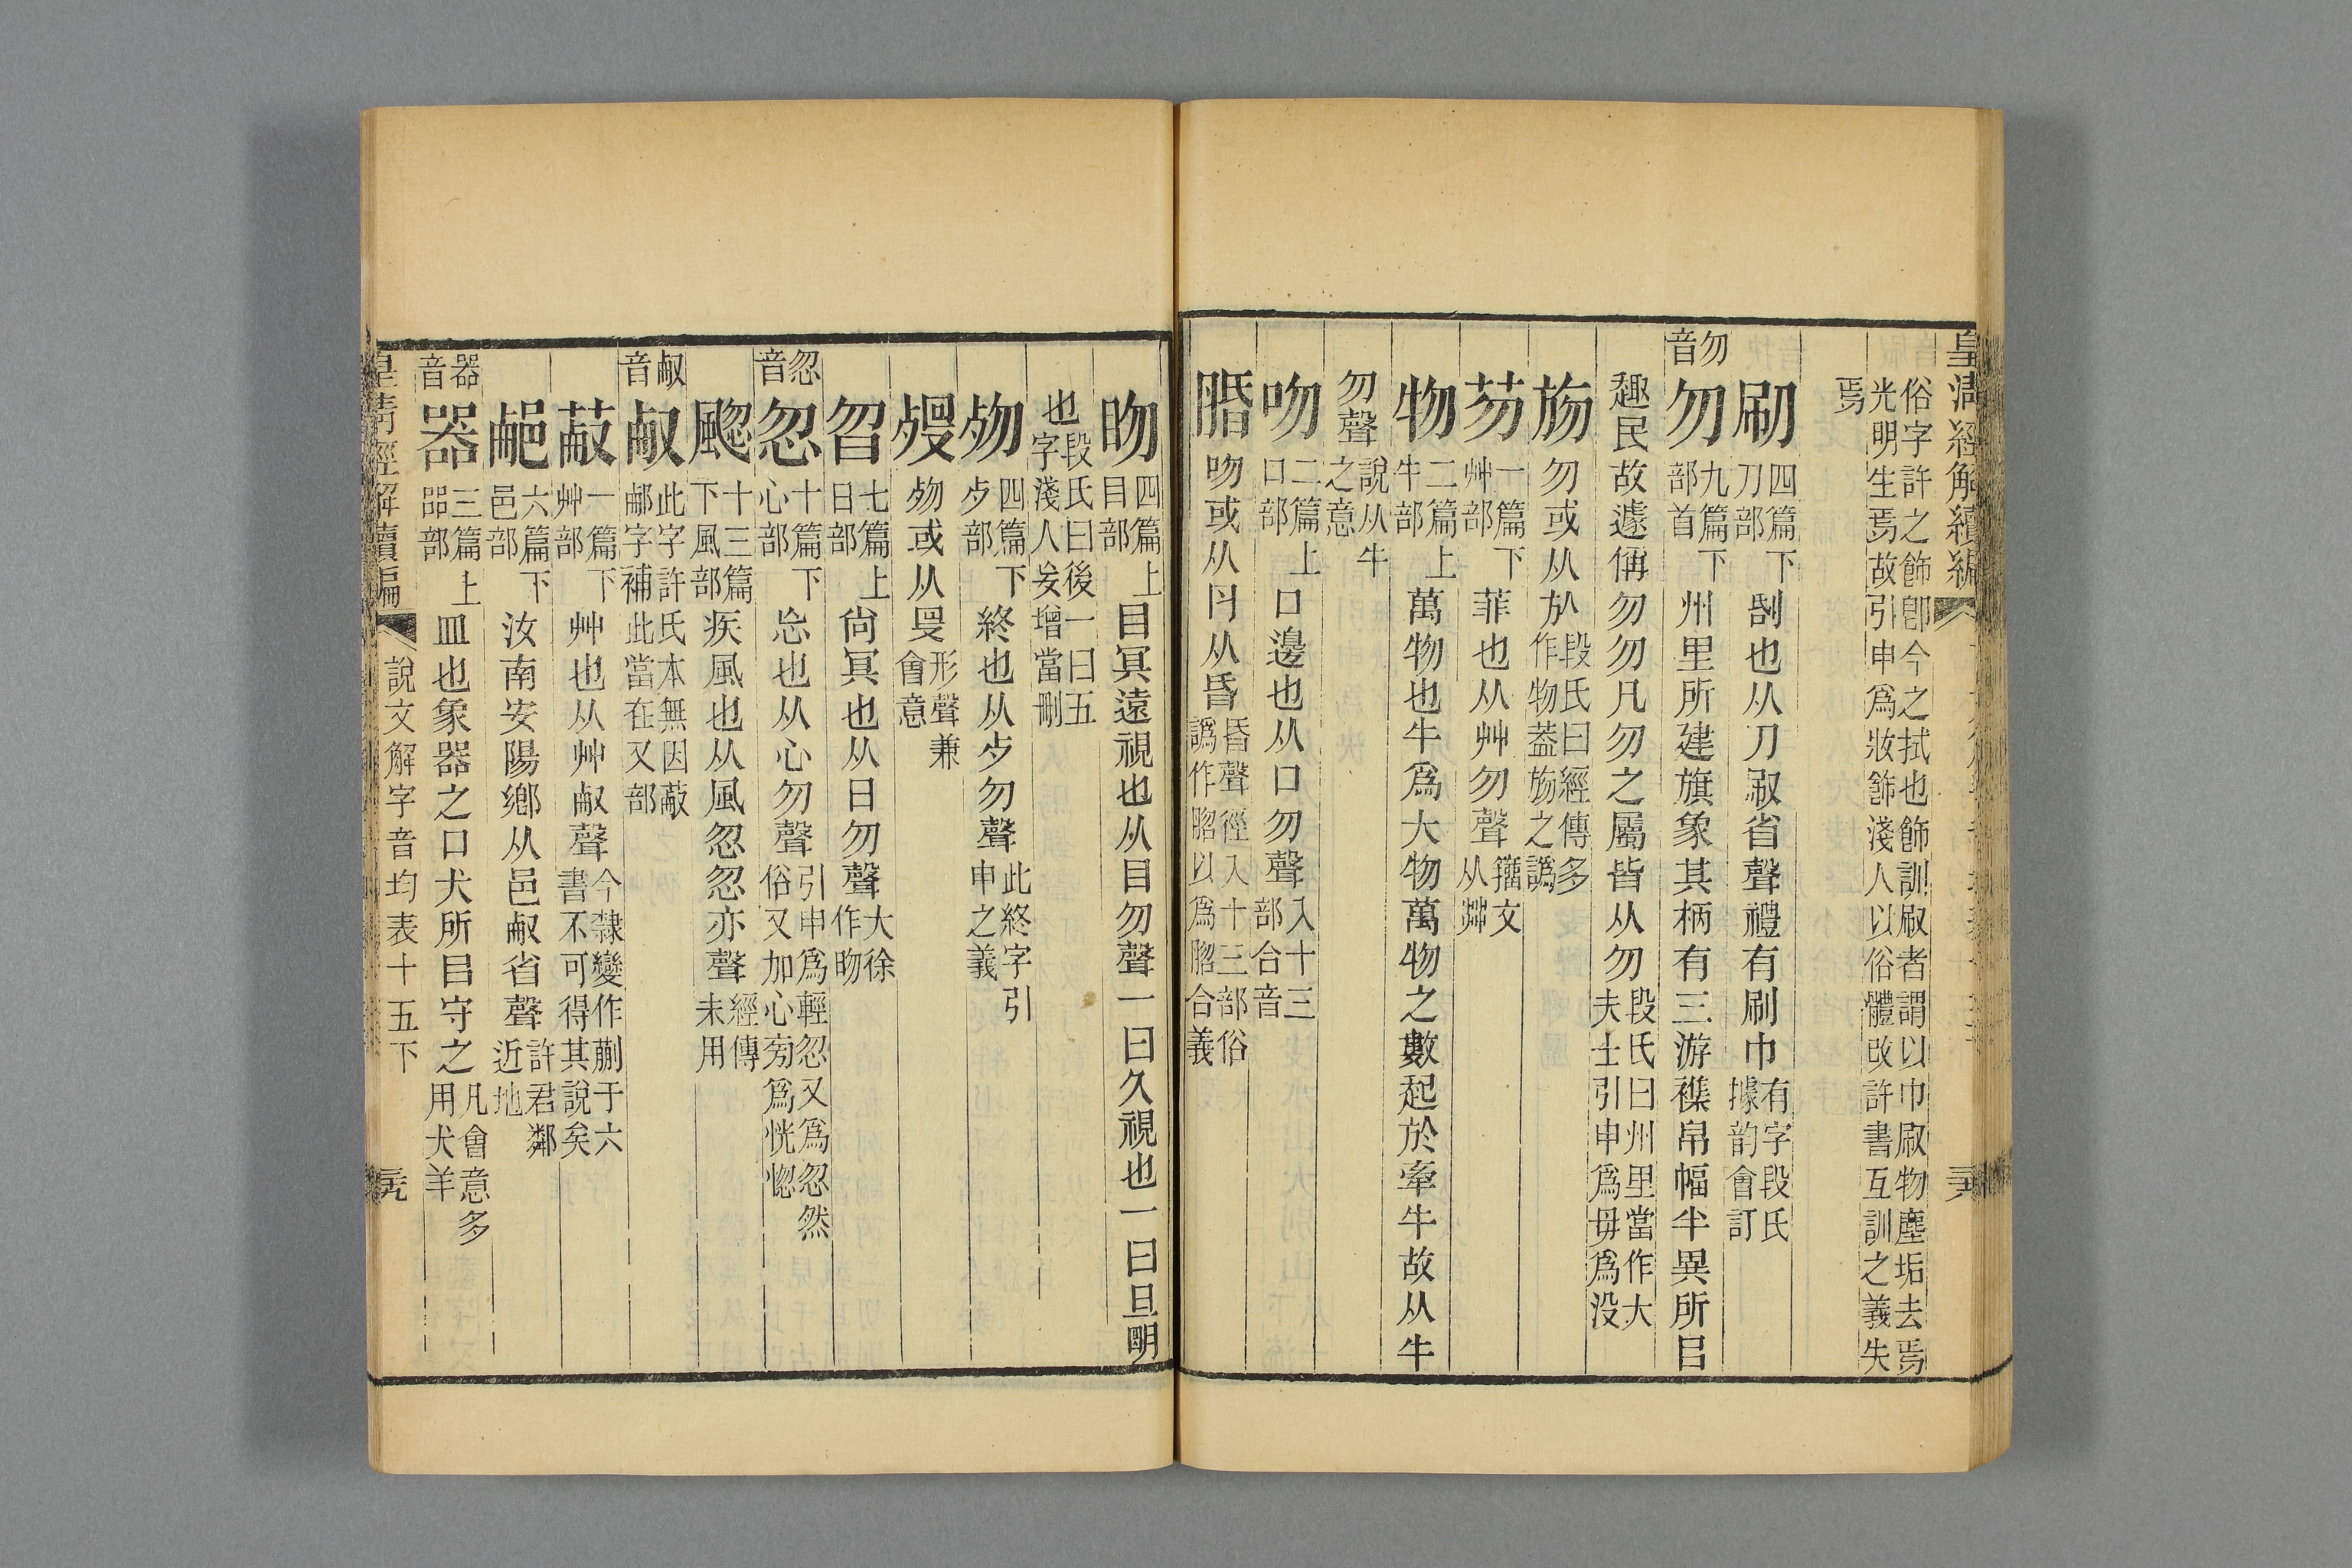 皇清經解續編
俗字許之飾卽今之拭也飾訓㕞者謂以巾㕞物塵垢去焉
光明生焉故引申爲妝飾淺人以俗體改許書互訓之義失
焉
刷四篇下刀部刮也从刀㕞省聲禮有刷巾有字段氏據韵會訂
勿音
勿九篇下部首州里所建旗象其柄有三游襍帛幅半異所㠯
趣民故遽偁勿勿凡勿之屬皆从勿段氏曰州里當作大夫士引申爲毋爲没
㫚勿或从㫃段氏曰經傳多作物蓋㫚之譌
芴一篇下艸部菲也从艸勿聲籒文从茻
物二篇上牛部萬物也牛爲大物萬物之數起於牽牛故从牛
勿聲說从牛之意
吻二篇上口部口邊也从口勿聲入十三部合音
䐇吻或从⺼从昏昏聲徑入十三部俗譌作䐇以爲䐇合義
眒四篇上目部目冥遠視也从目勿聲一曰久視也一曰旦明
也段氏曰後一曰五字淺人妄增當刪
歾四篇下歺部終也从歺勿聲此終字引申之義
歿歾或从𠬛形聲兼會意
曶七篇上日部尙冥也从日勿聲大徐作昒
忽音
忽十篇下心部忘也从心勿聲引申爲輕忽又爲忽然俗又加心旁爲恍惚
颮十三篇下風部疾風也从風忽忽亦聲經傳未用
㕟音
㕟此字許氏本無因蔽䣛字補此當在又部
蔽一篇下艸部艸也从艸㕟聲今隸變作蒯于六書不可得其說矣
䣛六篇下邑部汝南安陽鄉从邑㕟省聲許君鄰近地
器音
器三篇上㗊部皿也象器之口犬所㠯守之凡會意多用犬羊
皇清經解續編
說文解字音均表十五下